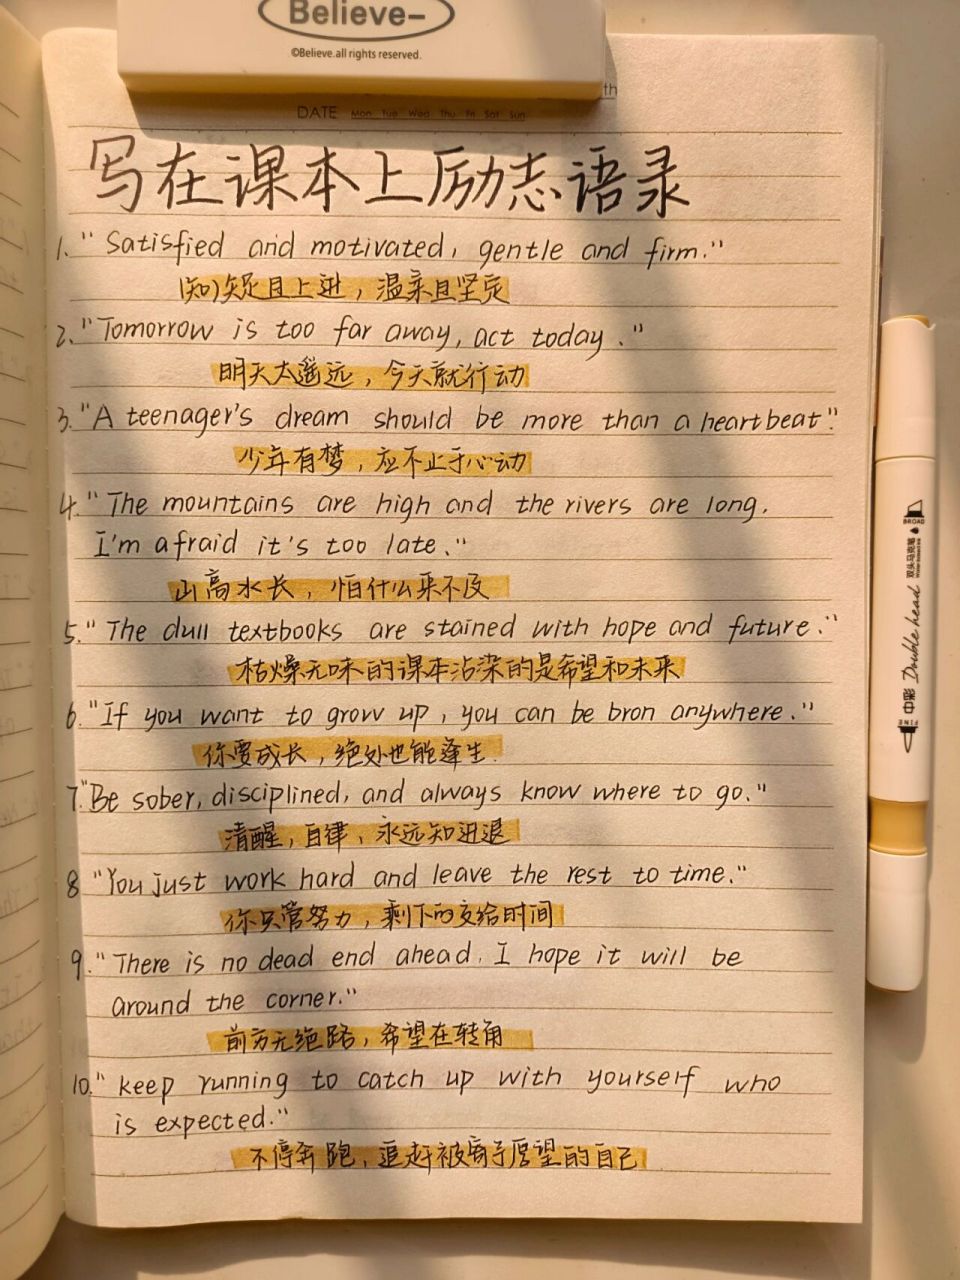 Believe-
©Believe.all rights reserved.
th
DATE Mon Tue Wed Thu Fri Sat Sun
写在课本上励志语录
1. "Satisfied and motivated, gentle and firm."
知足且上进，温柔且坚定
2. "Tomorrow is too far away, act today."
明天太遥远，今天就行动
3. "A teenager's dream should be more than a heartbeat".
少年有梦，应不止于心动
4. "The mountains are high and the rivers are long.
I'm afraid it's too late."
山高水长，怕什么来不及
5. "The dull textbooks are stained with hope and future."
枯燥无味的课本沾染的是希望和未来
6. "If you want to grow up, you can be bron anywhere."
你要成长，绝处也能逢生.
7. "Be sober, disciplined, and always know where to go."
清醒，自律，永远知进退
8 "You just work hard and leave the rest to time."
你只管努力，剩下的交给时间
9. "There is no dead end ahead. I hope it will be
around the corner."
前方无绝路，希望在转角
10. "keep running to catch up with yourself who
is expected."
不停奔跑，追赶被寄予厚望的自己
BROAD
双头马克笔
Double head
中彩
FINE